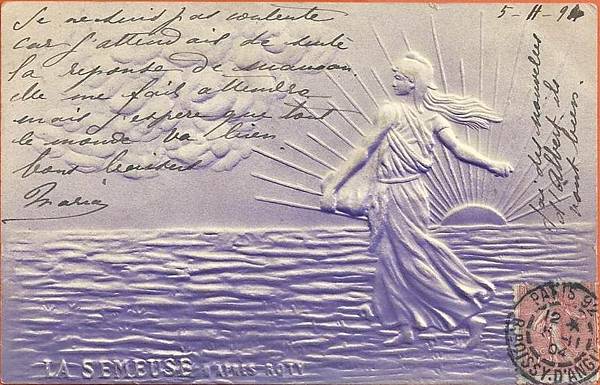 5-11-94
Je ne suis pas contente
car j'attendais de suite
la reponse de maman.
Elle me fait attendre
mais j'espere que tout
le monde va bien.
bons baisers
Maria
J'ai des nouvelles
d'Albert ils
vont bien.
LA SEMEUSE D'APRES ROTY
PARIS 92
12
11
04
R. BOISSY-D'ANGL